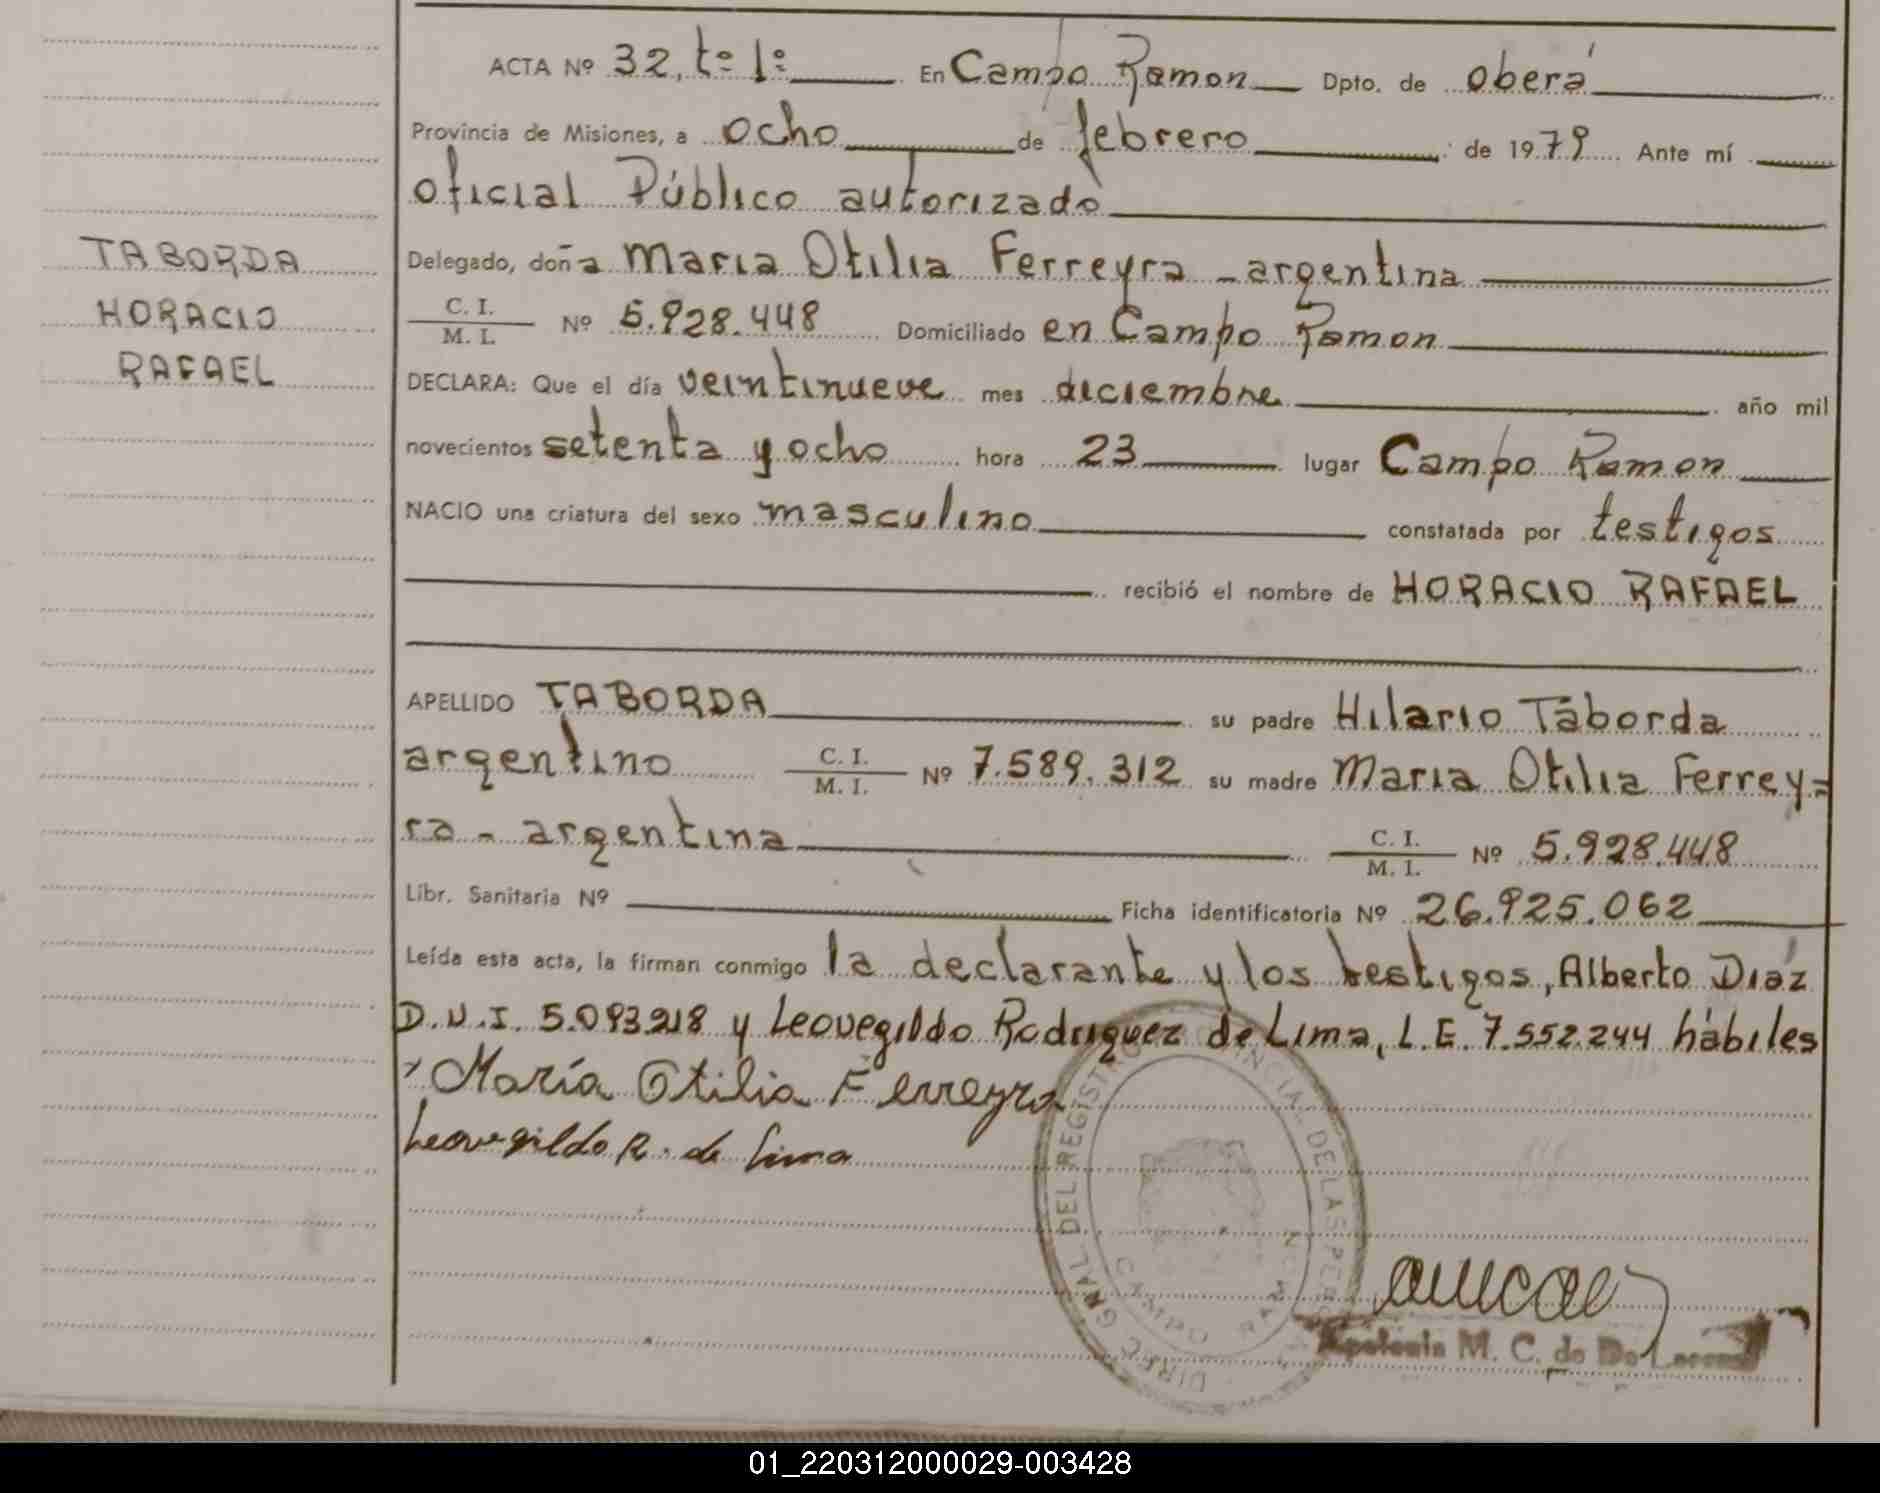 ACTA Nº 32, tº 1º En Campo Ramon Dpto. de oberá
Provincia de Misiones, a ocho de febrero de 1979 Ante mí
oficial Público autorizado
TABORDA
HORACIO
RAFAEL
Delegado, doña Maria Otilia Ferreyra - argentina
C. I.
M. I. Nº 5.928.448 Domiciliado en Campo Ramon
DECLARA: Que el día veintinueve mes diciembre año mil
novecientos setenta y ocho hora 23 lugar Campo Ramon
NACIO una criatura del sexo masculino constatada por testigos
recibió el nombre de HORACIO RAFAEL
APELLIDO TABORDA su padre Hilario Táborda
argentino C. I.
M. I. Nº 7.589.312 su madre Maria Otilia Ferrey=
ra - argentina C. I.
M. I. Nº 5.928.448
Libr. Sanitaria Nº Ficha identificatoria Nº 26.925.062
Leída esta acta, la firman conmigo la declarante y los testigos, Alberto Diáz
D.N.I. 5.093.218 y Leovegildo Rodriguez de Lima, L.E. 7.552.244 hábiles
María Otilia Ferreyra
Leovegildo R. de Lima
DIREC. GRAL DEL REGISTRO PROVINCIAL DE LAS PERS
CAMPO RAMON
Apolonia M. C. de De
01_220312000029-003428